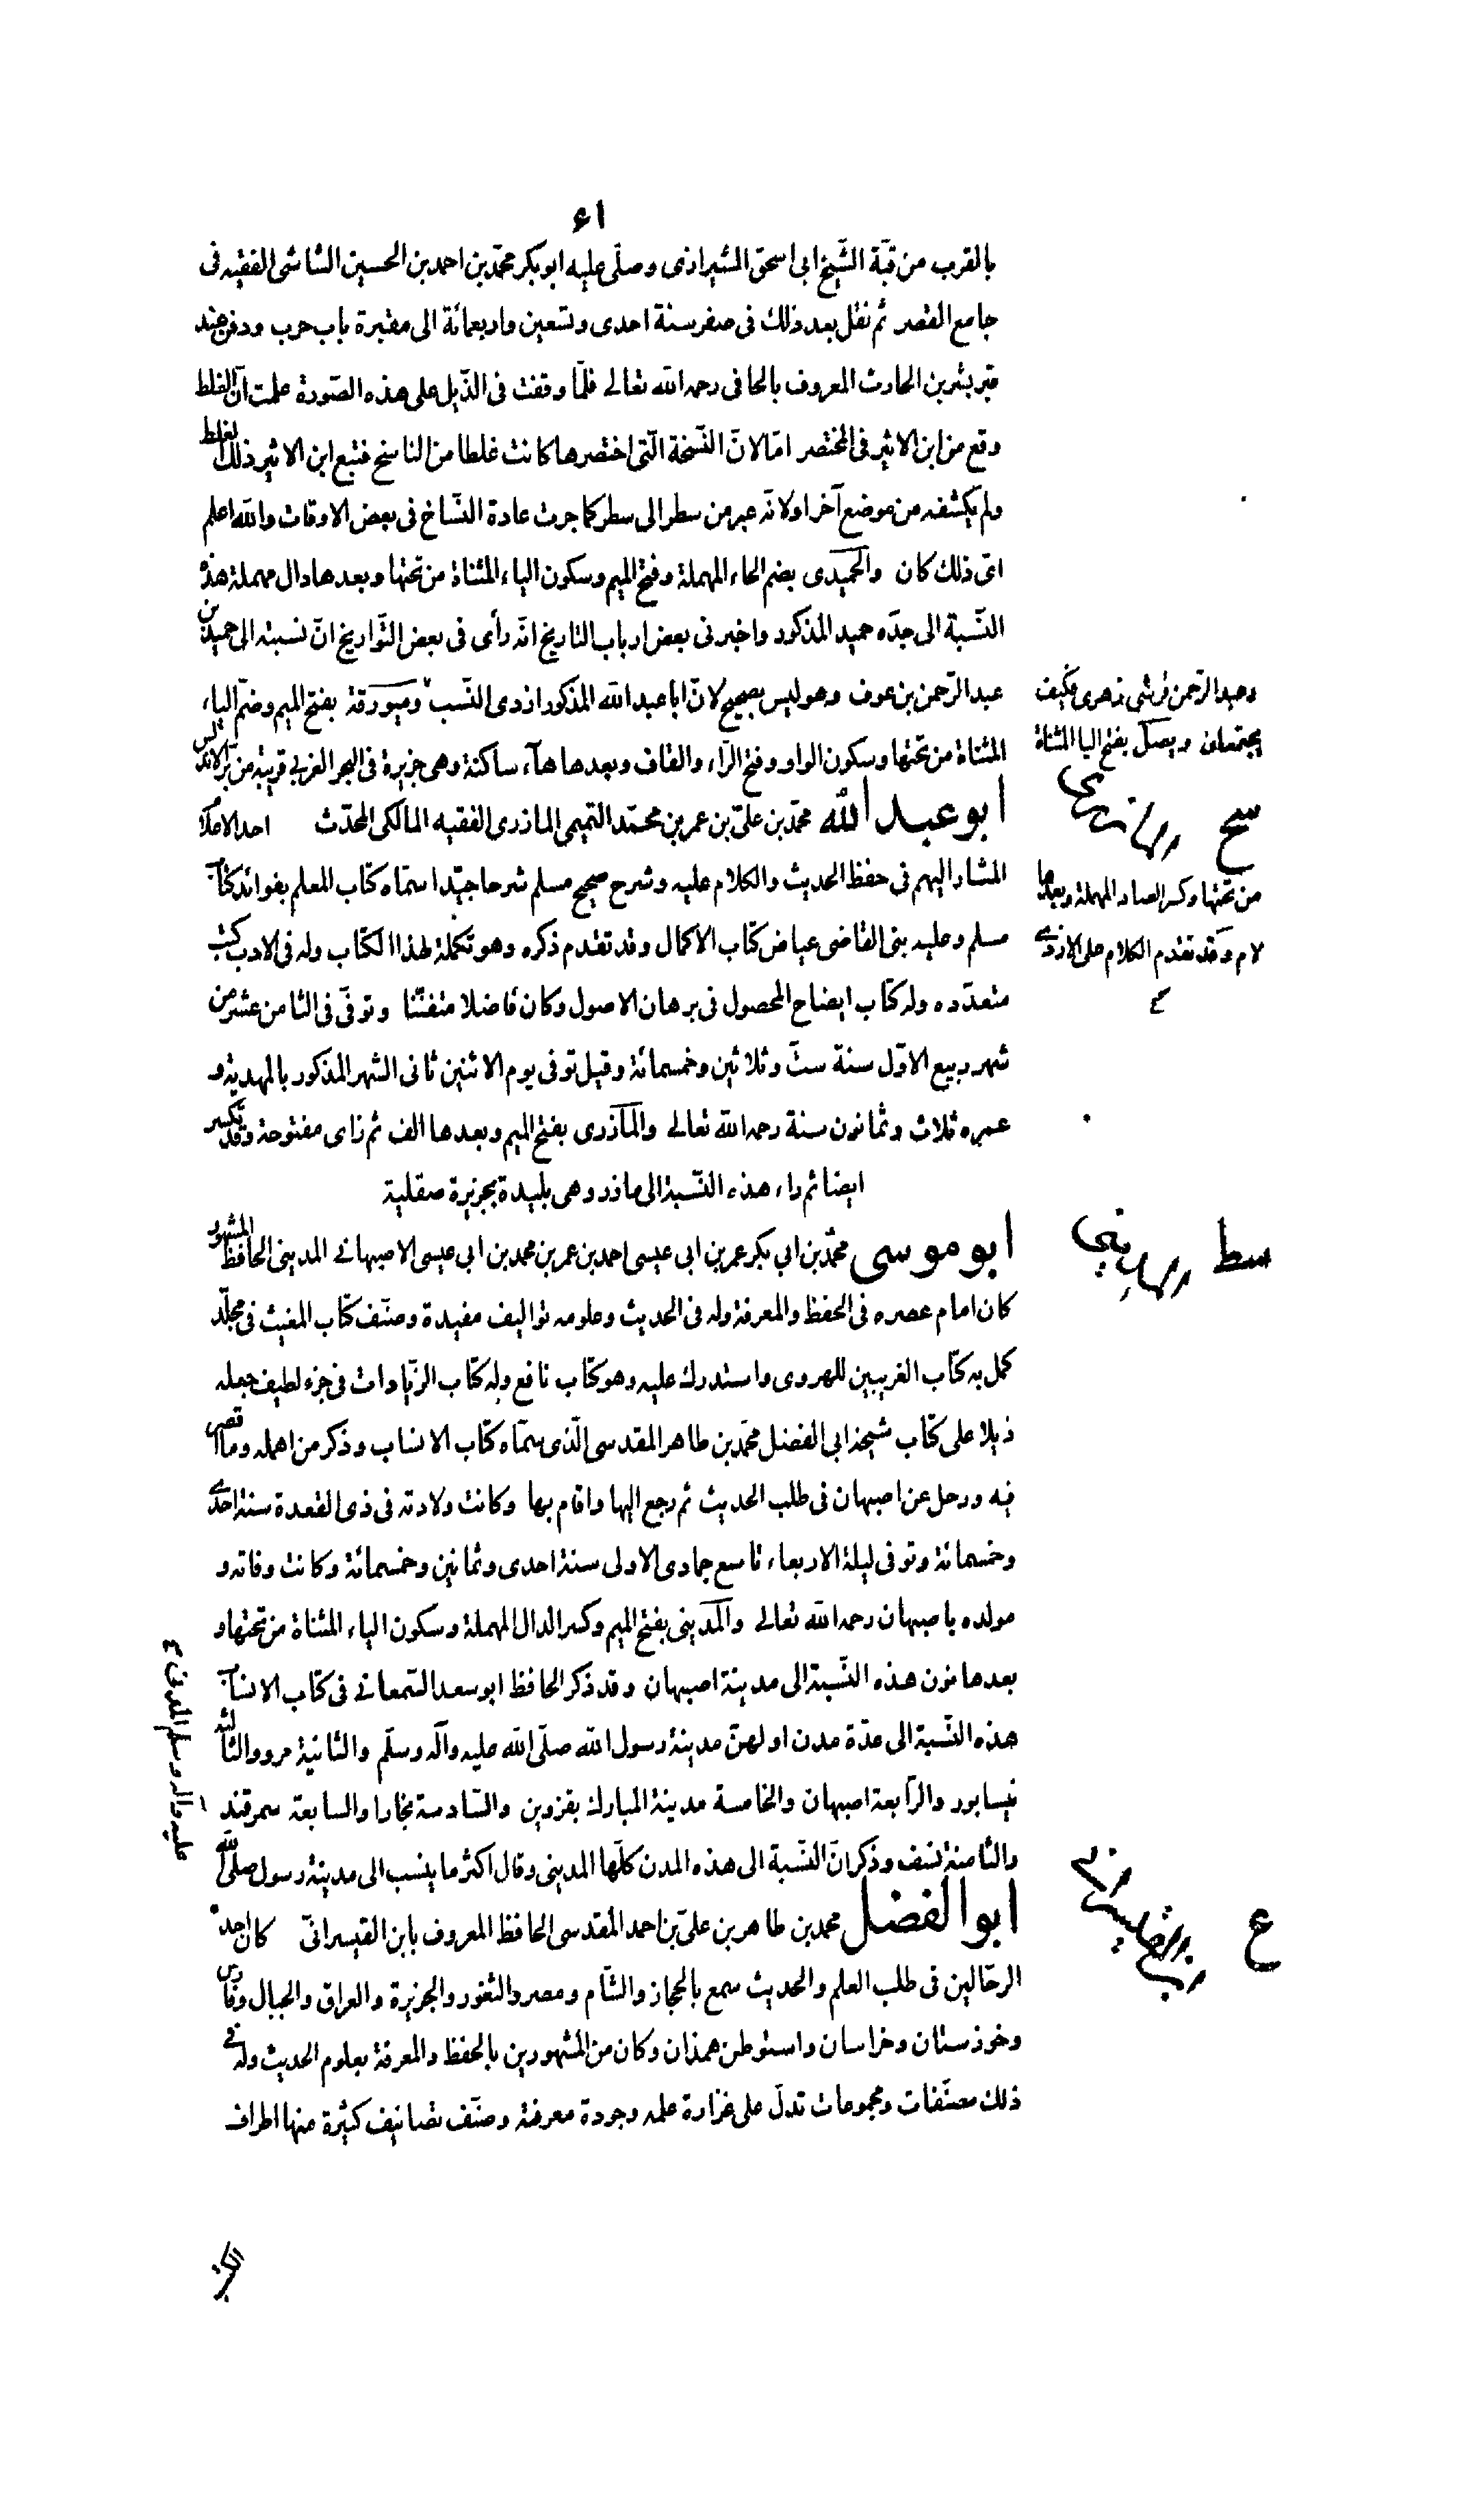 بالقرب من قبّة الشّيخ ابى اسحق الشيرازى وصلّى عليه ابوبكر محمّد بن احمد بن الحسين الشاشى الفقيه فى
جامع القصر ثم نقل بعد ذلك فى صفر سنة احدى وتسعين واربعمائة الى مقبرة باب حرب ودفن عند
قبر بشر بن الحارث المعروف بالحافى رحمه الله تعالى فلمّا وقفت فى الذّيل على هذه الصّورة علمت انّ الغلط
وقع من ابن الاثير فى المختصر امّا لانّ النّسخة الّتى اختصرها كانت غلطا من الناسخ فتبع ابن الاثير ذلك الغلط
ولم يكشفه من موضع آخر او لانّه عبر من سطر الى سطر كما جرت عادة النّسّاخ فى بعض الاوقات والله اعلم
اىّ ذلك كان والحميدى بضم الحاء المهملة وفتح الميم وسكون الياء المثناة من تحتها وبعدها دال مهملة هذه
النّسبة الى جدّه حميد المذكور واخبرنى بعض ارباب التاريخ انّه رأى فى بعض التّواريخ انّ نسبته الى حميد بن
عبد الرّحمن بن عوف وهو ليس بصحيح لانّ ابا عبد الله المذكور ازدى النّسب وميورقة بفتح الميم وضمّ الياء
وعبد الرّحمن قرشى زهرى فكيف
المثناة من تحتها وسكون الواو وفتح الرّاء والقاف وبعدها هآء ساكنة وهى جزيرة فى البحر الغربى قريبة من برّ الاندلس
يجتمعان ويصل بفتح اليا المثناة
أبو عبد الله محمّد بن علىّ بن عمر بن محمّد التميمى المازرى الفقيه المالكى المحدّث احد الاعلام
سح المازرى
المشار اليهم فى حفظ الحديث والكلام عليه وشرح صحيح مسلم شرحا جيّدا سمّاه كتاب المعلم بفوائد كتاب
من تحتها وكسر الصاد المهملة وبعدها
مسلم وعليه بنى القاضى عياض كتاب الاكمال وقد تقدم ذكره وهو تكملة لهذا الكتاب وله فى الادب كتب
لام وقد تقدم الكلام على الازدى
متعدّده وله كتاب ايضاح المحصول فى برهان الاصول وكان فاضلا متفنّنا وتوفّى فى الثامن عشر من
شهر ربيع الاوّل سنة ستّ وثلاثين وخمسمائة وقيل توفى يوم الاثنين ثانى الشهر المذكور بالمهدية و
عمره ثلاث وثمانون سنة رحمه الله تعالى والمازرى بفتح الميم وبعدها الف ثم زاى مفتوحة وقد تكسر
ايضا ثم راء هذه النّسبة الى مازر وهى بليدة بجزيرة صقلية
أبو موسى محمّد بن ابى بكر عمر بن ابى عيسى احمد بن عمر بن محمد بن ابى عيسى الاصبهانى المدينى الحافظ المشهور
سط المدينى
كان امام عصره فى الحفظ والمعرفة وله فى الحديث وعلومه تواليف مفيدة وصنّف كتاب المغيث فى مجلّد
كمل به كتاب الغريبين للهروى واستدرك عليه وهو كتاب نافع وله كتاب الزّيادات فى جزء لطيف جعله
ذيلا على كتاب شيخه ابى الفضل محمّد بن طاهر المقدسى الّذى سمّاه كتاب الانساب وذكر من اهمله وما اقصر
فيه ورحل عن اصبهان فى طلب الحديث ثم رجع اليها واقام بها وكانت ولادته فى ذى القعدة سنة احدى
وخمسمائة وتوفى ليلة الاربعاء تاسع جمادى الاولى سنة احدى وثمانين وخمسمائة وكانت وفاته و
مولده باصبهان رحمه الله تعالى والمدينى بفتح الميم وكسر الدال المهملة وسكون الياء المثناة من تحتها و
بعدها نون هذه النّسبة الى مدينة اصبهان وقد ذكر الحافظ ابو سعد السّمعانى فى كتاب الانساب
هذه النّسبة الى عدّة مدن اولهنّ مدينة رسول الله صلّى الله عليه وآله وسلّم والثانية مرو والثالثة
نيسابور والرّابعة اصبهان والخامسة مدينة المبارك بقزوين والسّادسة بخارا والسابعة سمرقند
والثامنة نسف وذكر انّ النّسبة الى هذه المدن كلّها المدينى وقال اكثر ما ينسب الى مدينة رسول صلى الله
عليه واله وسلم المدنى
أبو الفضل محمد بن طاهر بن علىّ بن احمد المقدسى الحافظ المعروف بابن القيسرانىّ كان احد
ع ابن القيسرانى
الرحّالين فى طلب العلم والحديث سمع بالحجاز والشّام ومصر والثغور والجزيرة والعراق والجبال وفارس
وخوزستان وخراسان واستوطن همذان وكان من المشهورين بالحفظ والمعرفة بعلوم الحديث وله فى
ذلك مصنّفات ومجموعات تدلّ على غزارة علمه وجودة معرفته وصنّف تصانيف كثيرة منها اطراف
الكتب